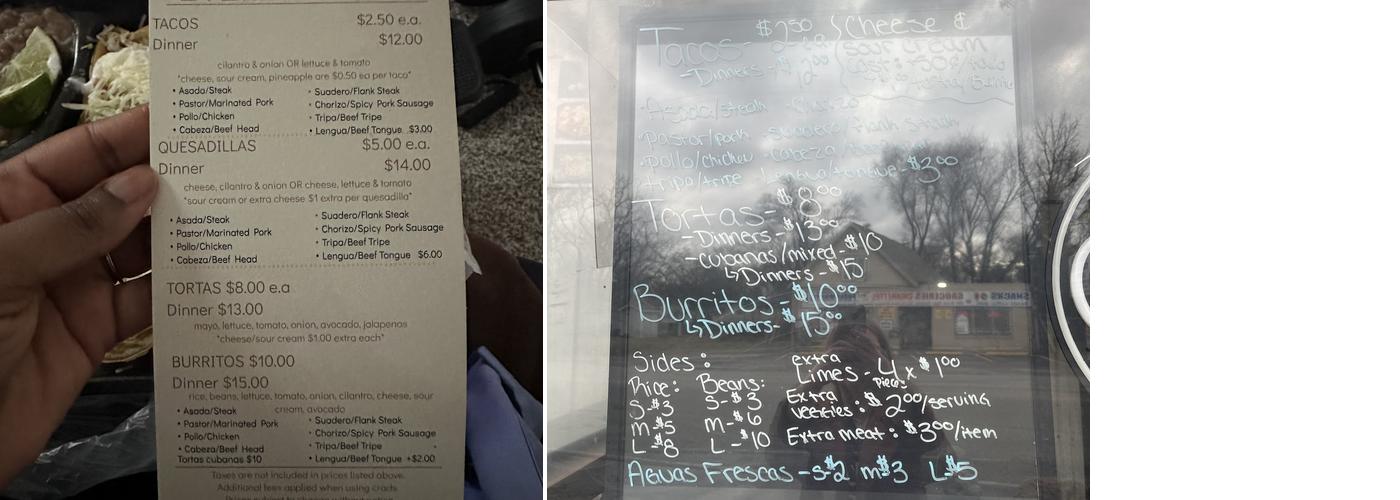 TACOS $2.50 e.a.
Dinner $12.00
cilantro & onion OR lettuce & tomato
*cheese, sour cream, pineapple are $0.50 ea per taco*
• Asada/Steak
• Pastor/Marinated Pork
• Pollo/Chicken
• Cabeza/Beef Head
• Suadero/Flank Steak
• Chorizo/Spicy Pork Sausage
• Tripa/Beef Tripe
• Lengua/Beef Tongue $3.00
QUESADILLAS $5.00 e.a.
Dinner $14.00
cheese, cilantro & onion OR cheese, lettuce & tomato
*sour cream or extra cheese $1 extra per quesadilla*
• Asada/Steak
• Pastor/Marinated Pork
• Pollo/Chicken
• Cabeza/Beef Head
• Suadero/Flank Steak
• Chorizo/Spicy Pork Sausage
• Tripa/Beef Tripe
• Lengua/Beef Tongue $6.00
TORTAS $8.00 e.a
Dinner $13.00
mayo, lettuce, tomato, onion, avocado, jalapenos
*cheese/sour cream $1.00 extra each*
BURRITOS $10.00
Dinner $15.00
rice, beans, lettuce, tomato, onion, cilantro, cheese, sour
cream, avocado
• Asada/Steak
• Pastor/Marinated Pork
• Pollo/Chicken
• Cabeza/Beef Head
Tortas cubanas $10
• Suadero/Flank Steak
• Chorizo/Spicy Pork Sausage
• Tripa/Beef Tripe
• Lengua/Beef Tongue +$2.00
Taxes are not included in prices listed above.
Additional fees applied when using cards
Tacos- $2.50 ea
- Dinners - $12.00
Cheese &
sour cream
cost: +50¢/taco
Asada/steak
Pastor/pork - Suadero/flank steak
Pollo/chicken - Cabeza/
tripa/tripe Lengua/tongue - $3.00
Tortas - $8.00
- Dinners - $13.00
- cubanas/mixed - $10
↳ Dinners - $15
Burritos - $10.00
↳ Dinners - $15.00
Sides:
Rice: Beans:
S-$3 S-$3
M-$5 M-$6
L-$8 L-$10
extra
Limes - 4 pieces x $1.00
Extra
veggies: $2.00/serving
Extra meat: $3.00/item
Aguas Frescas - S-$2 m$3 L-$5